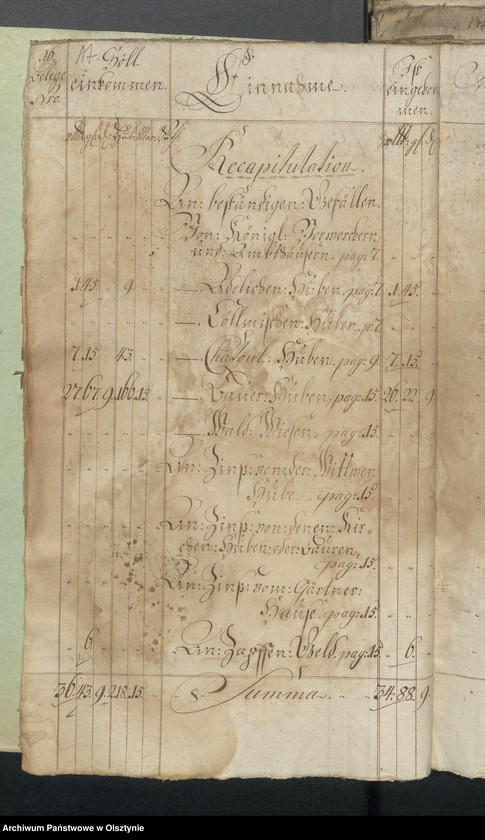 16.
Belege
Nro.
Soll
einkommen.
Einnahme.
Ist
eingekom
men.
Recapitulation.
An: beständigen: Gefällen.
Von: Königl: Vorwercken
und: Ambthäusern. pag: 7.
1. 45. 9. — Adelichen: Huben. pag: 7. 1. 45.
— Cöllmischen: Huben. p: 7
7. 15. 43. — Chatoul: Huben. pag: 9. 7. 15.
27. 67. 9. 166. 15. — Bauer: Huben. pag: 15. 26. 22. 9.
— Wald: Wiesen. pag: 15.
An: Zinß: von: der: Wittwen
Hube. pag: 15.
An: Zinß: von: denen: Kir-
chen: Huben: oder: Bauren.
pag: 15.
An: Zinß: vom: Gärtner:
Hause. pag: 15.
6. An: Zapffen: Geld. pag: 15. 6.
36. 43. 9. 218. 15. Summa 34. 88. 9
Archiwum Państwowe w Olsztynie